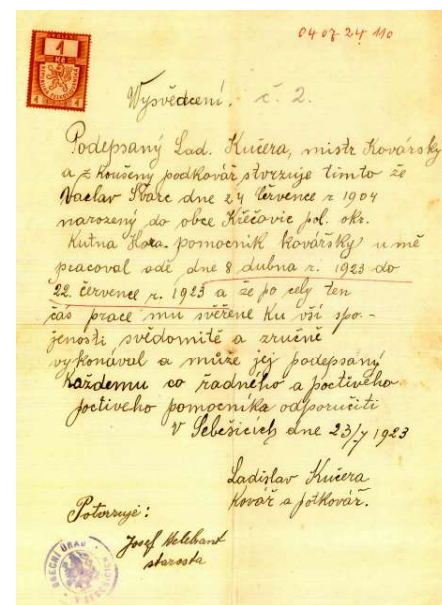 04 07 24 110
1
Kč
Vysvědčení. č. 2.
Podepsaný Lad. Kučera, mistr Kovářsky
a zkoušený podkovář stvrzuje timto že
Vaclav Švarc dne 24 července r 1904
narozený do obce Křečovic pol. okr.
Kutna Hora. pomocnik kovářsky u mě
pracoval odě dne 8 dubna r. 1923 do
22. července r. 1923 a že po cely ten
čas prace mu svěřene ku vší spo-
jenosti svědomitě a zručně
vykonával a může jej podepsaný
každemu co řadného a poctiveho
poctiveho pomocníka odporučiti
V Sebešicích dne 23/7 1923
Ladislav Kučera
Kovář a potkovář.
Potvrzuje:
Josef
starosta
OBECNÍ ÚŘAD